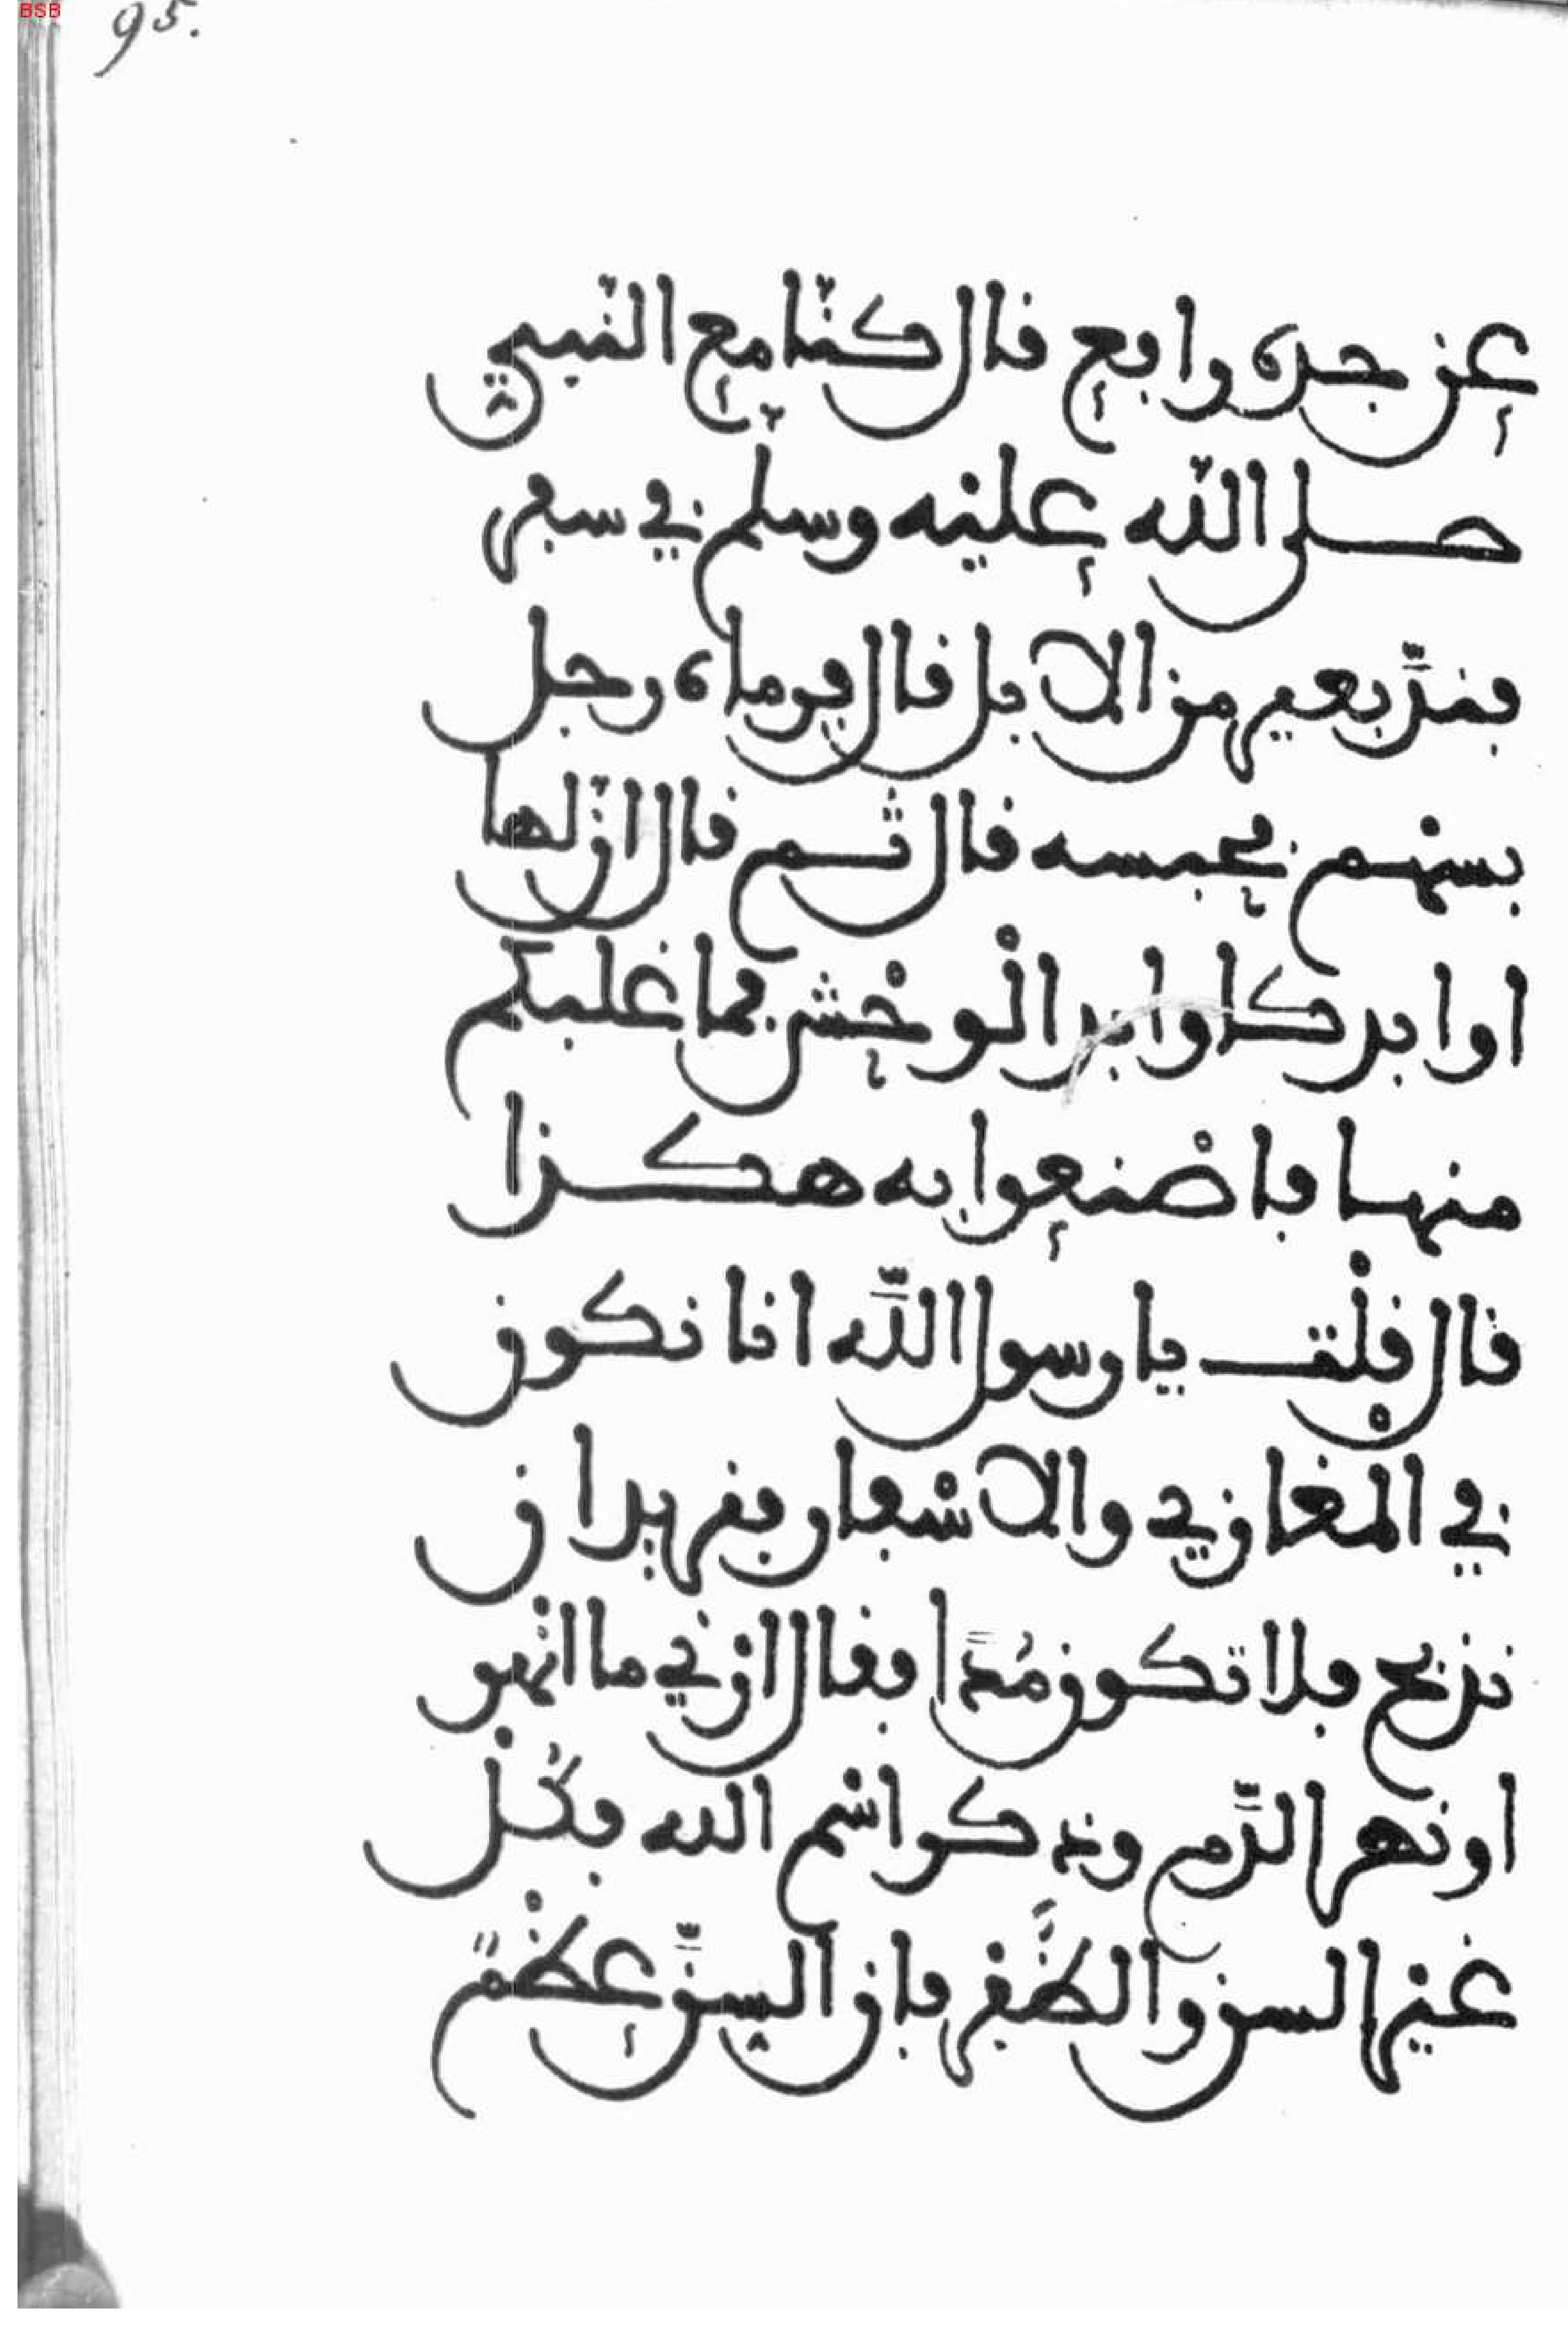 95.
عن جده رافع قال كنا مع النبي
صلى الله عليه وسلم في سفر
فند بعير من الابل قال فرماه رجل
بسهم فحبسه قال ثم قال ان لها
اوابد كاوابد الوحش فما غلبكم
منها فاصنعوا به هكذا
قال قلت يا رسول الله انا نكون
في المغازي والاسفار فنريد ان
نذبح فلا تكون مدا فقال ارني ما انهر
او نهر الدم وذكر اسم الله فكل
غير السن والظفر فان السن عظم